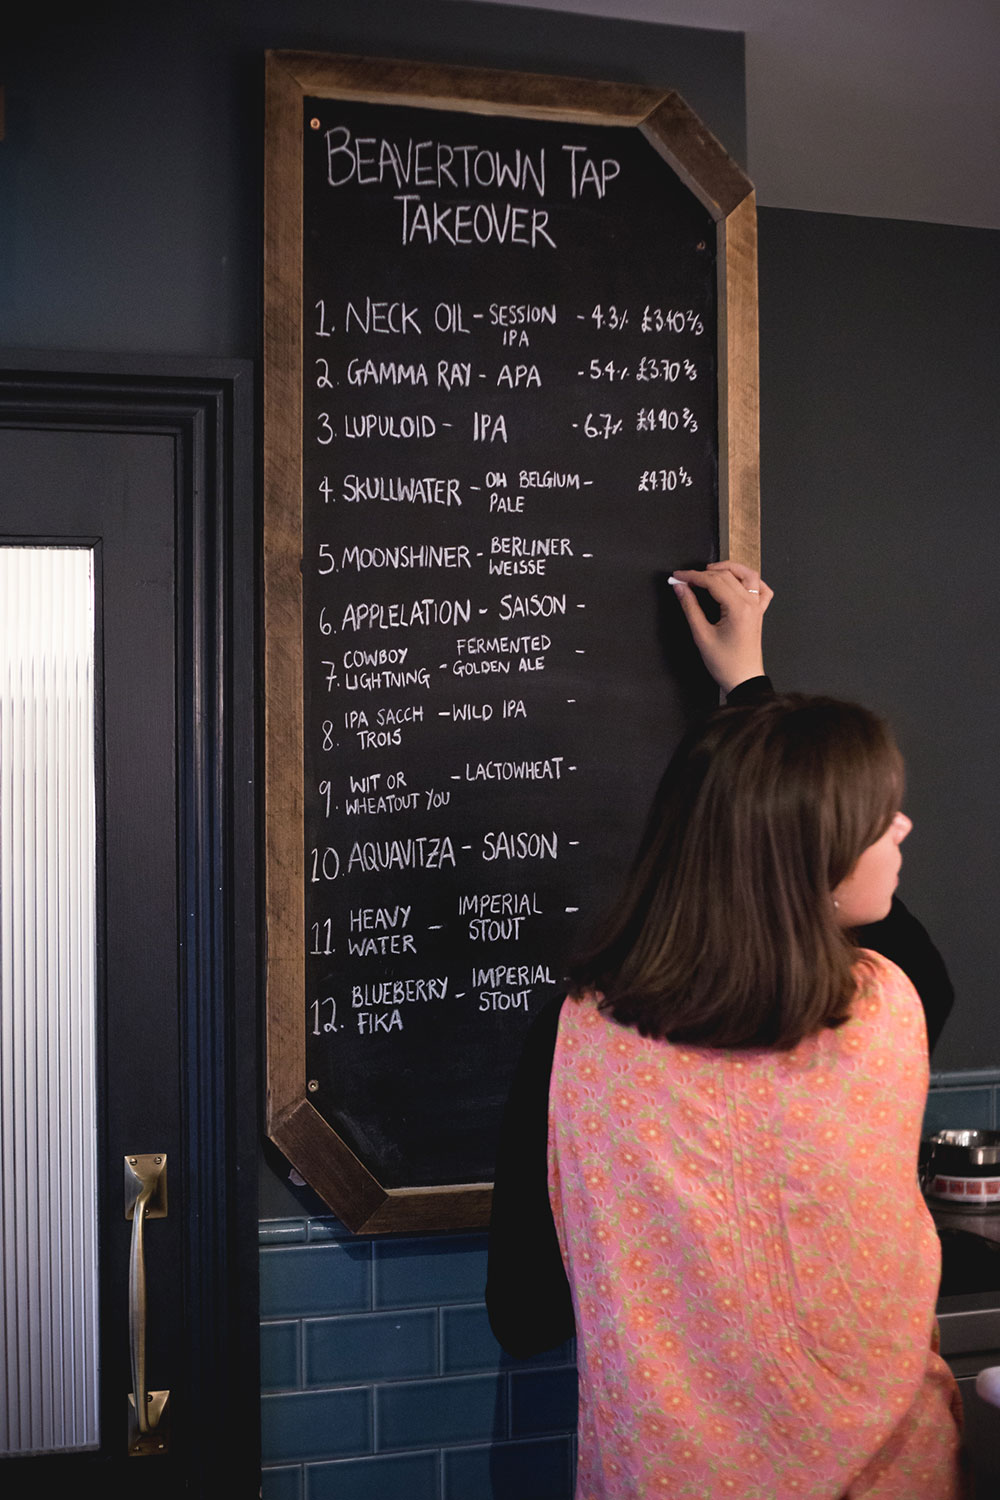 BEAVERTOWN TAP
TAKEOVER
1. NECK OIL - SESSION IPA - 4.3% £3.40 2/3
2. GAMMA RAY - APA - 5.4% £3.70 2/3
3. LUPULOID - IPA - 6.7% £4.40 2/3
4. SKULLWATER - OH BELGIUM PALE - £4.70 2/3
5. MOONSHINER - BERLINER WEISSE -
6. APPLELATION - SAISON -
7. COWBOY LIGHTNING - FERMENTED GOLDEN ALE -
8. IPA SACCH TROIS - WILD IPA -
9. WIT OR WHEATOUT YOU - LACTOWHEAT -
10. AQUAVITZA - SAISON -
11. HEAVY WATER - IMPERIAL STOUT -
12. BLUEBERRY FIKA - IMPERIAL STOUT -